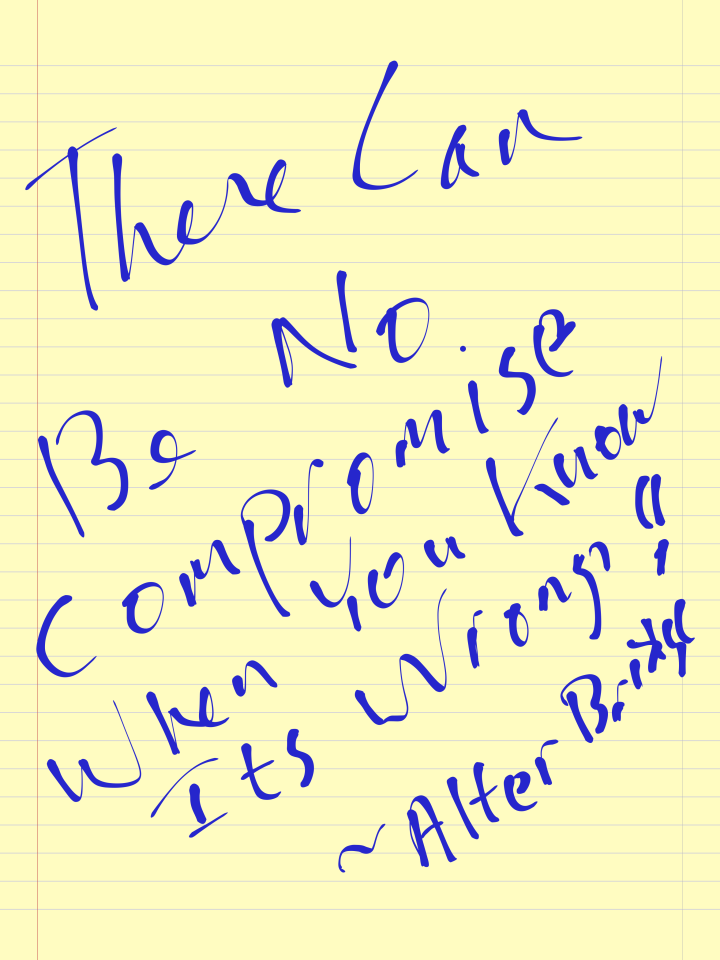 There Can
Be No.
Compromise
When You Know
Its Wrong"!!
~Alter